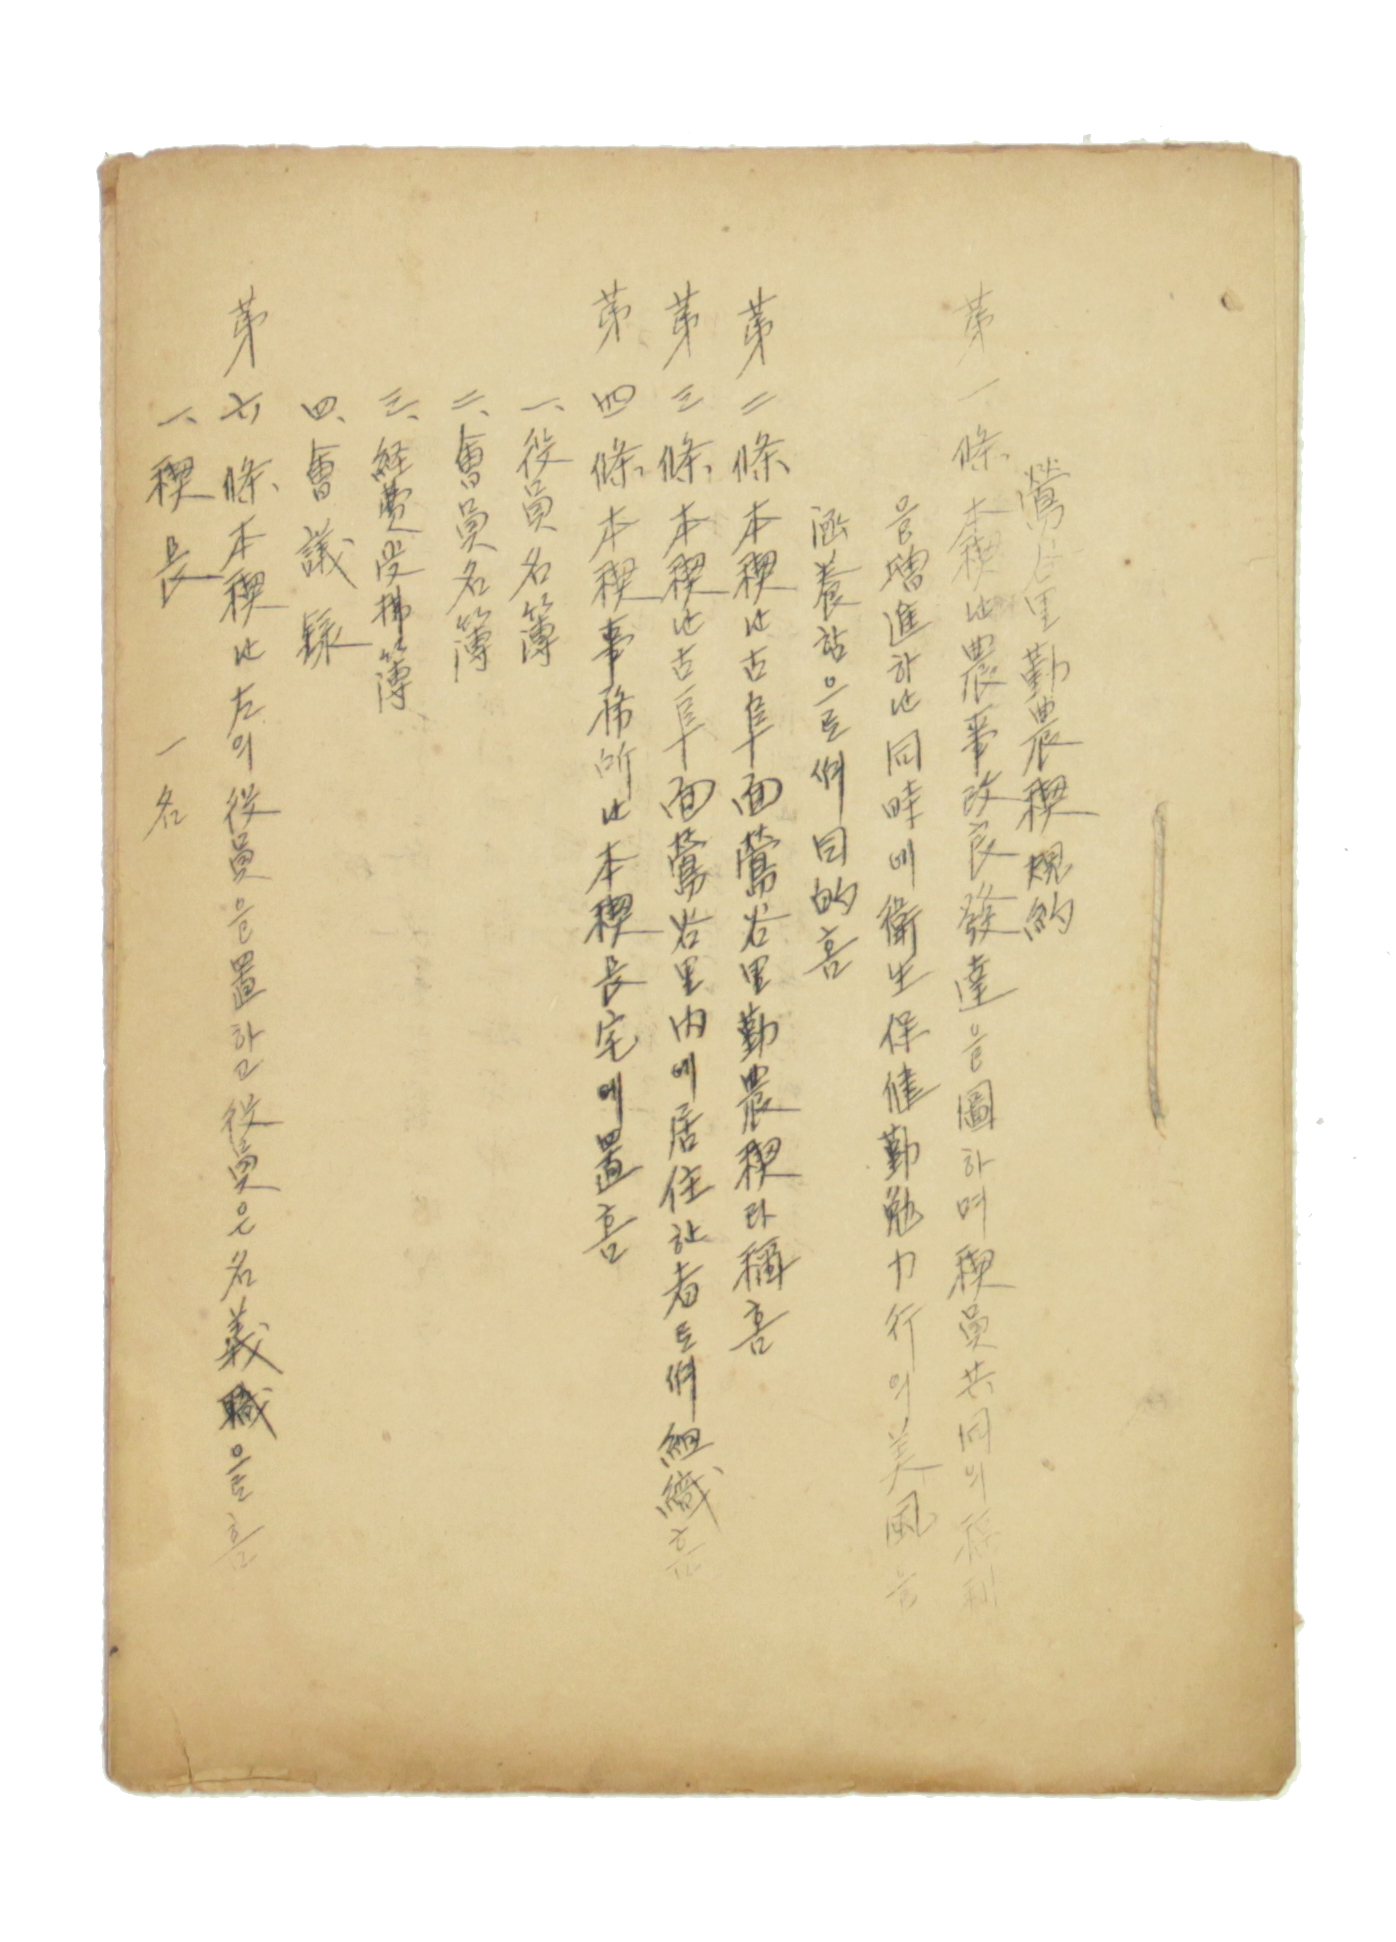 鶯谷里勤農稧規約
第一條 本稧는 農事改良發達을 圖하며 稧員共同의 福利
을 增進하는 同時에 衛生保健勤勉力行의 美風을
涵養함으로써 目的홈
第二條 本稧는 古阜面鶯谷里勤農稧라 稱홈
第三條 本稧는 古阜面鶯谷里內에 居住한 者로써 組織홈
第四條 本稧事務所는 本稧長宅에 置홈
一、役員名簿
二、會員名簿
三、経費受拂簿
四、會議錄
第六條 本稧는 左의 役員을 置하고 役員은 名義職으로 홈
一、稧長 一名